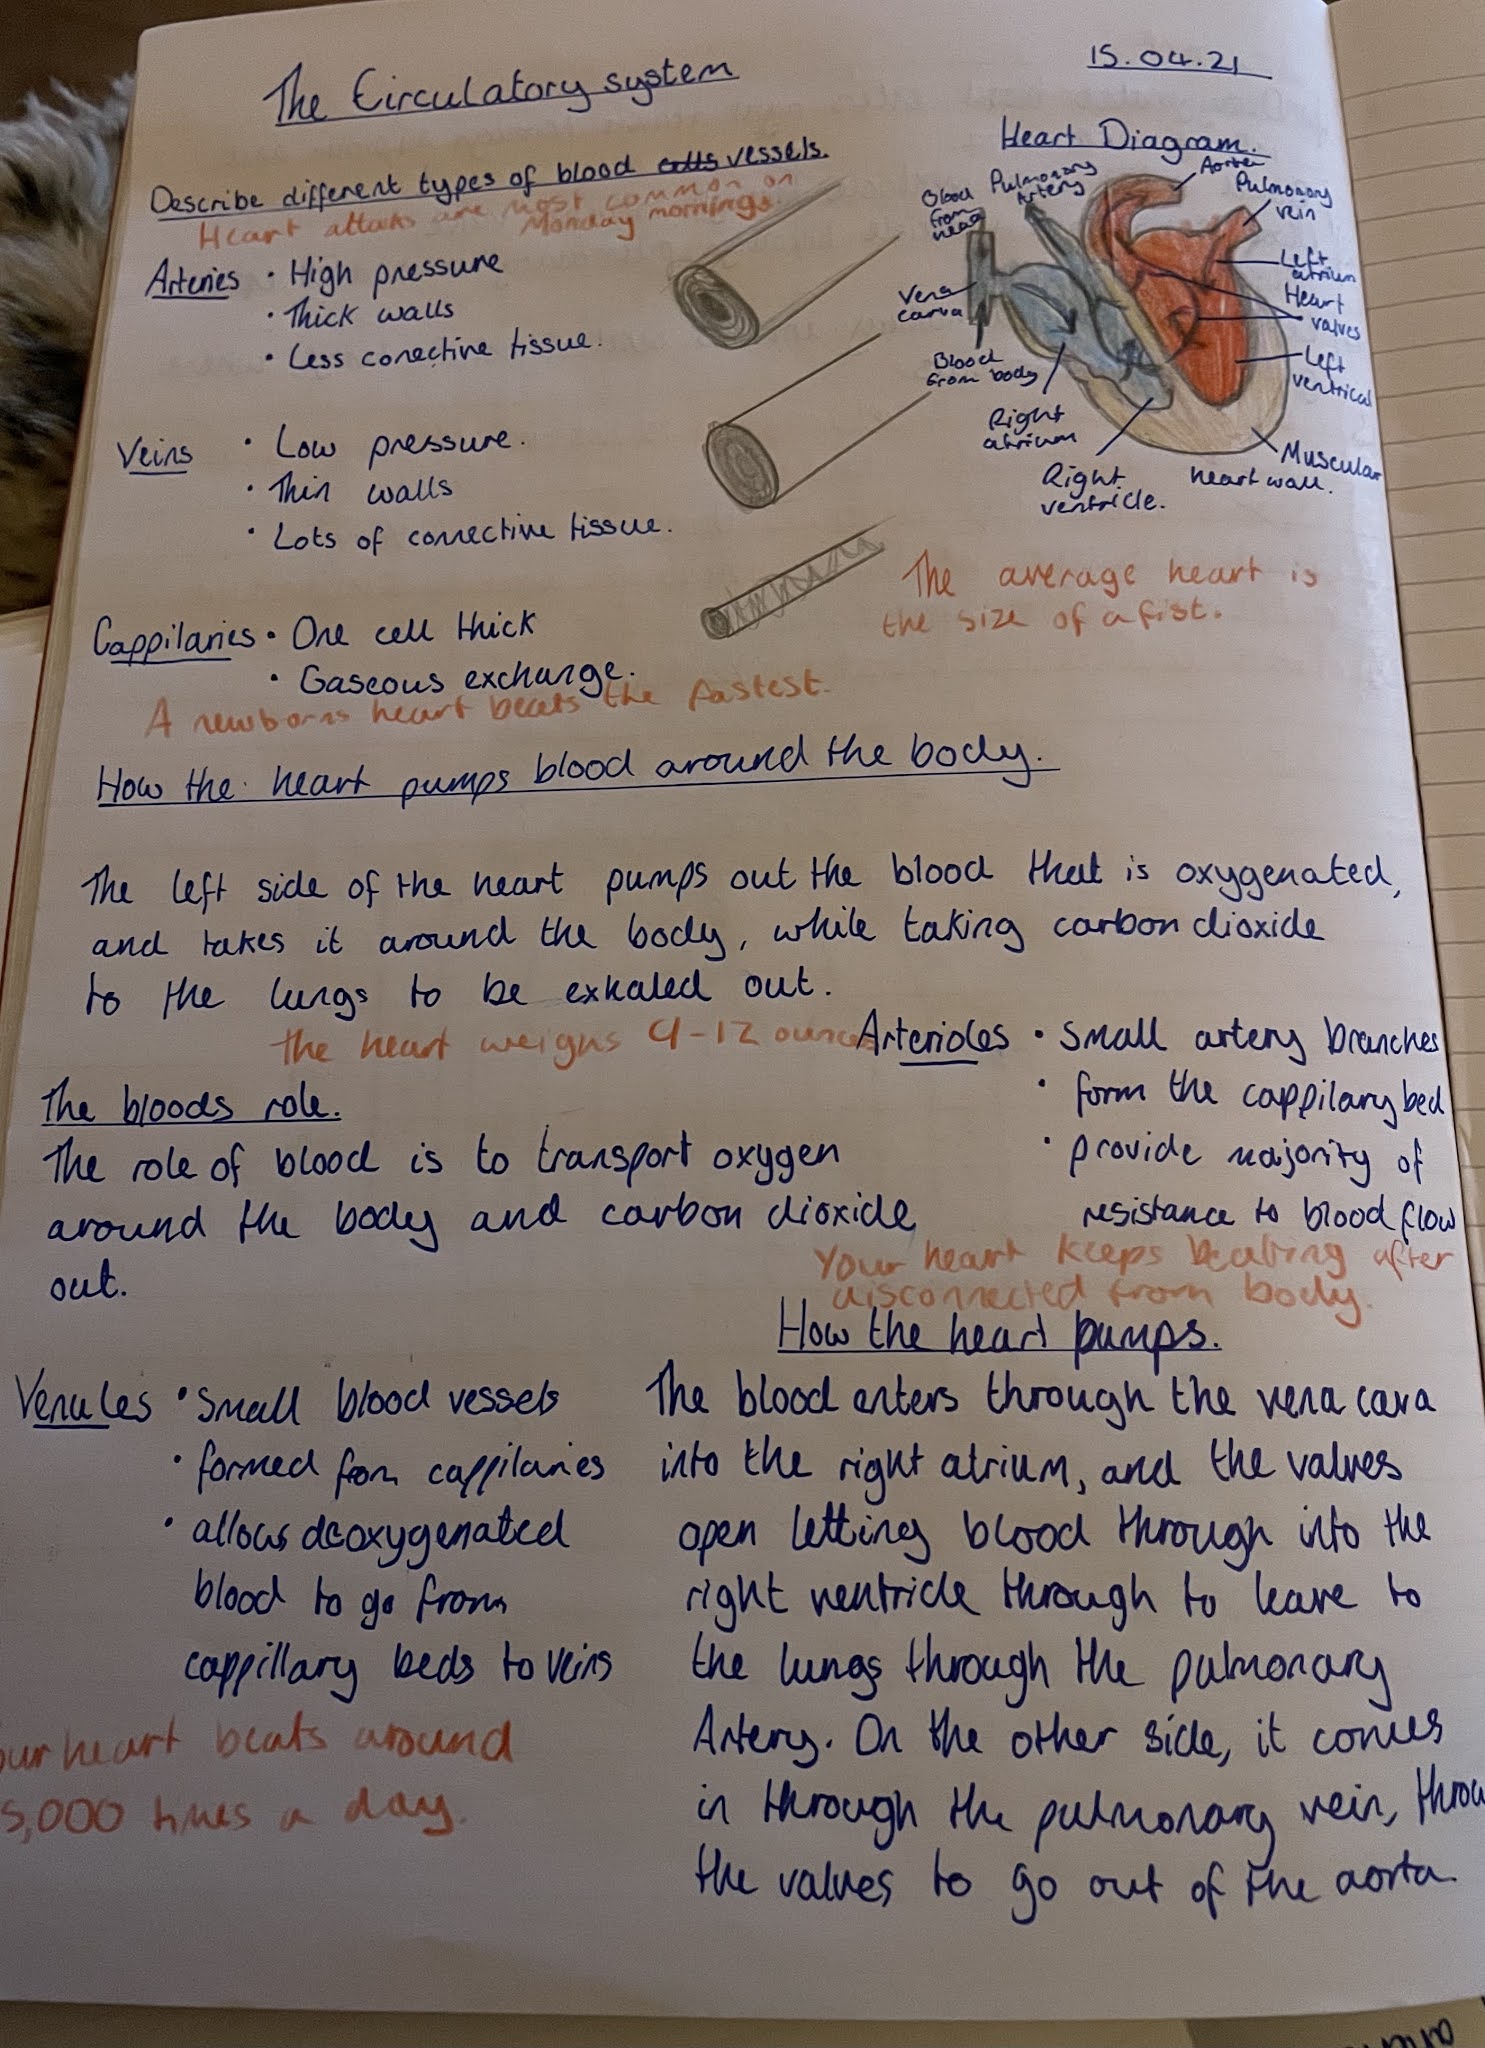 The Circulatory system
15.04.21
Describe different types of blood cells vessels.
Heart attaks are most common on
Monday mornings.
Arteries • High pressure
• Thick walls
• Less conective tissue.
Veins • Low pressure.
• Thin walls
• Lots of connective tissue.
Cappilaries • One cell thick
• Gaseous exchange.
A newborns heart beats the fastest.
Heart Diagram.
Blood
from
head
Pulmonary
Artery
Aorter
Pulmonary
vein
Left
atrium
Heart
valves
Left
ventrical
Muscular
heart wall.
Right
ventricle.
Right
atrium
Blood
from body
Vena
carva
The average heart is
the size of a fist.
How the heart pumps blood around the body.
The left side of the heart pumps out the blood that is oxygenated,
and takes it around the body, while taking carbon dioxide
to the lungs to be exhaled out.
The heart weighs 9-12 ounces
Arterioles • Small artery branches
• form the cappilary bed
• provide majority of
resistance to blood flow
Your heart keeps beating after
disconnected from body.
The bloods role.
The role of blood is to transport oxygen
around the body and carbon dioxide
out.
Venules • Small blood vessels
• formed from cappilaries
• allows deoxygenated
blood to go from
cappillary beds to veins
our heart beats around
5,000 times a day.
How the heart pumps.
The blood enters through the vena cava
into the right atrium, and the valves
open letting blood through into the
right ventricle through to leave to
the lungs through the pulmonary
Artery. On the other side, it comes
in through the pulmonary vein, throu
the valves to go out of the aorta.